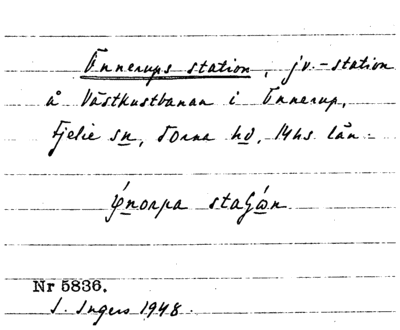 Önnerups station, jv.-station
å Västkustbanan i Önnerup,
Fjelie sn, Torna hd, Mhs län.
ǿnorpa staʃǿn
Nr 5836.
I. Ingers 1948.